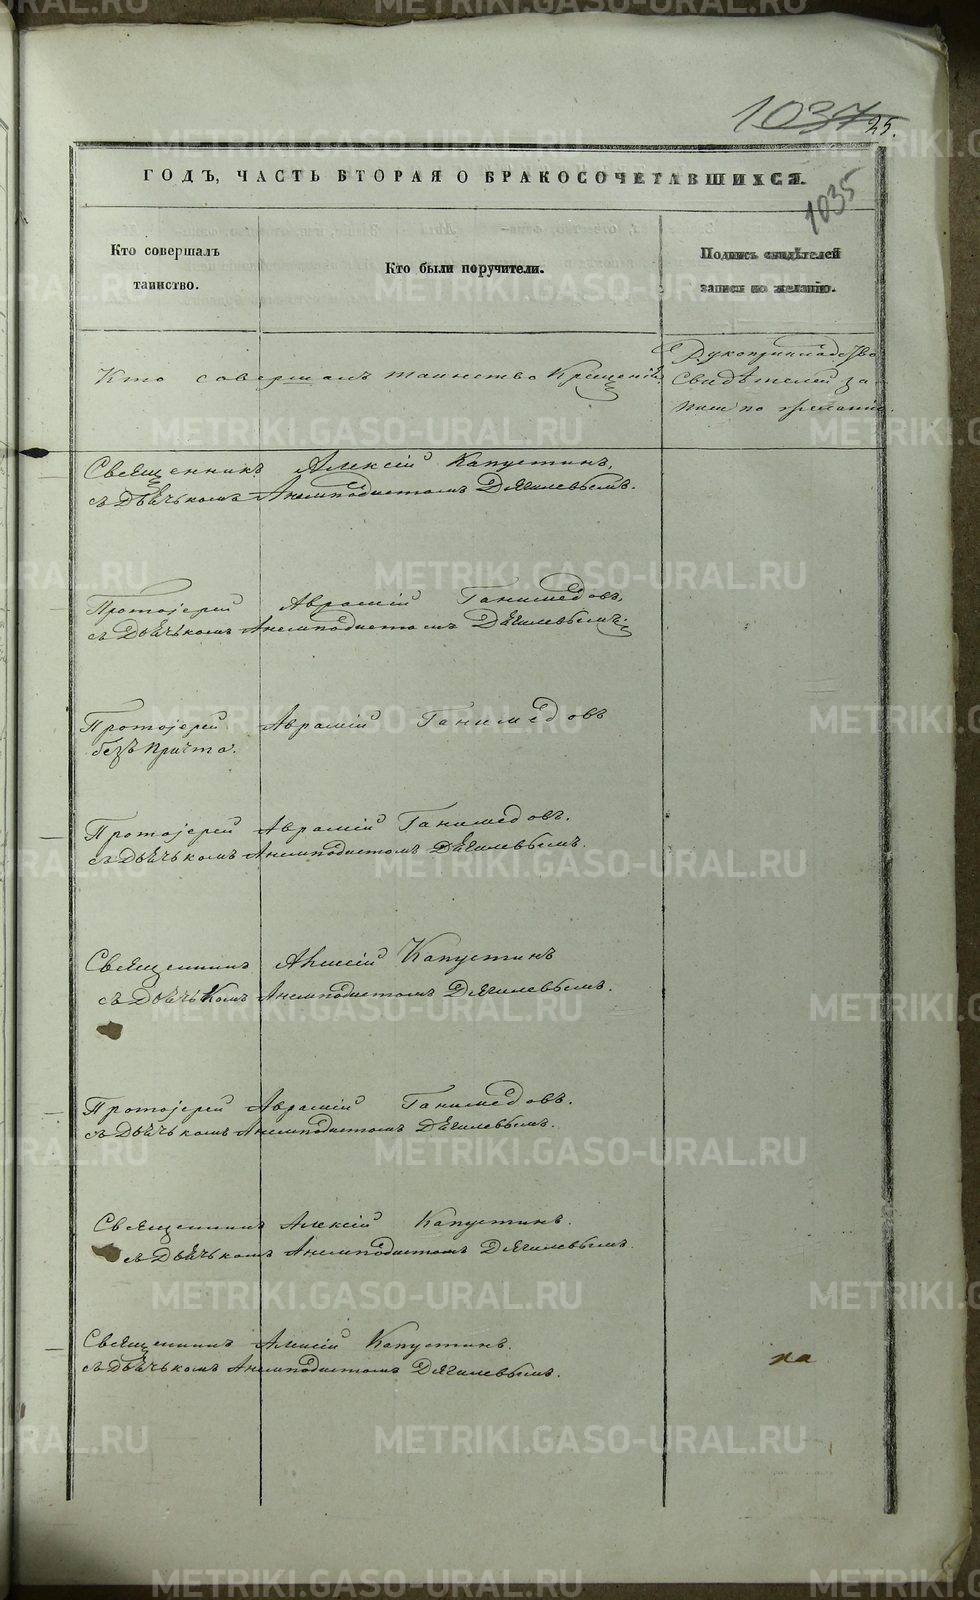 METRIKI.GASO-URAL.RU
1037 25.
ГОДЪ, ЧАСТЬ ВТОРАЯ О БРАКОСОЧЕТАВШИХСЯ.
1035
Кто совершалъ
таинство.
Кто были поручители.
Подпись свидѣтелей
записи по желанію.
Кто совершалъ таинство Крещенія
Рукоприкладство
Свидѣтелей за-
писи по желанію.
Священникъ Алексій Капустинъ,
съ Дьячькомъ Анемподистомъ Дягилевымъ.
Протоіерей Аврамій Ганимедовъ,
съ Дьячькомъ Анемподистомъ Дягилевымъ.
Протоіерей Аврамій Ганимедовъ
безъ причта.
Протоіерей Аврамій Ганимедовъ.
съ Дьячькомъ Анемподистомъ Дягилевымъ.
Священникъ Алексій Капустинъ
съ Дьячькомъ Анемподистомъ Дягилевымъ.
Протоіерей Аврамій Ганимедовъ.
съ Дьячькомъ Анемподистомъ Дягилевымъ.
Священникъ Алексій Капустинъ.
съ Дьячькомъ Анемподистомъ Дягилевымъ.
Священникъ Алексій Капустинъ.
съ Дьячькомъ Анемподистомъ Дягилевымъ.
на